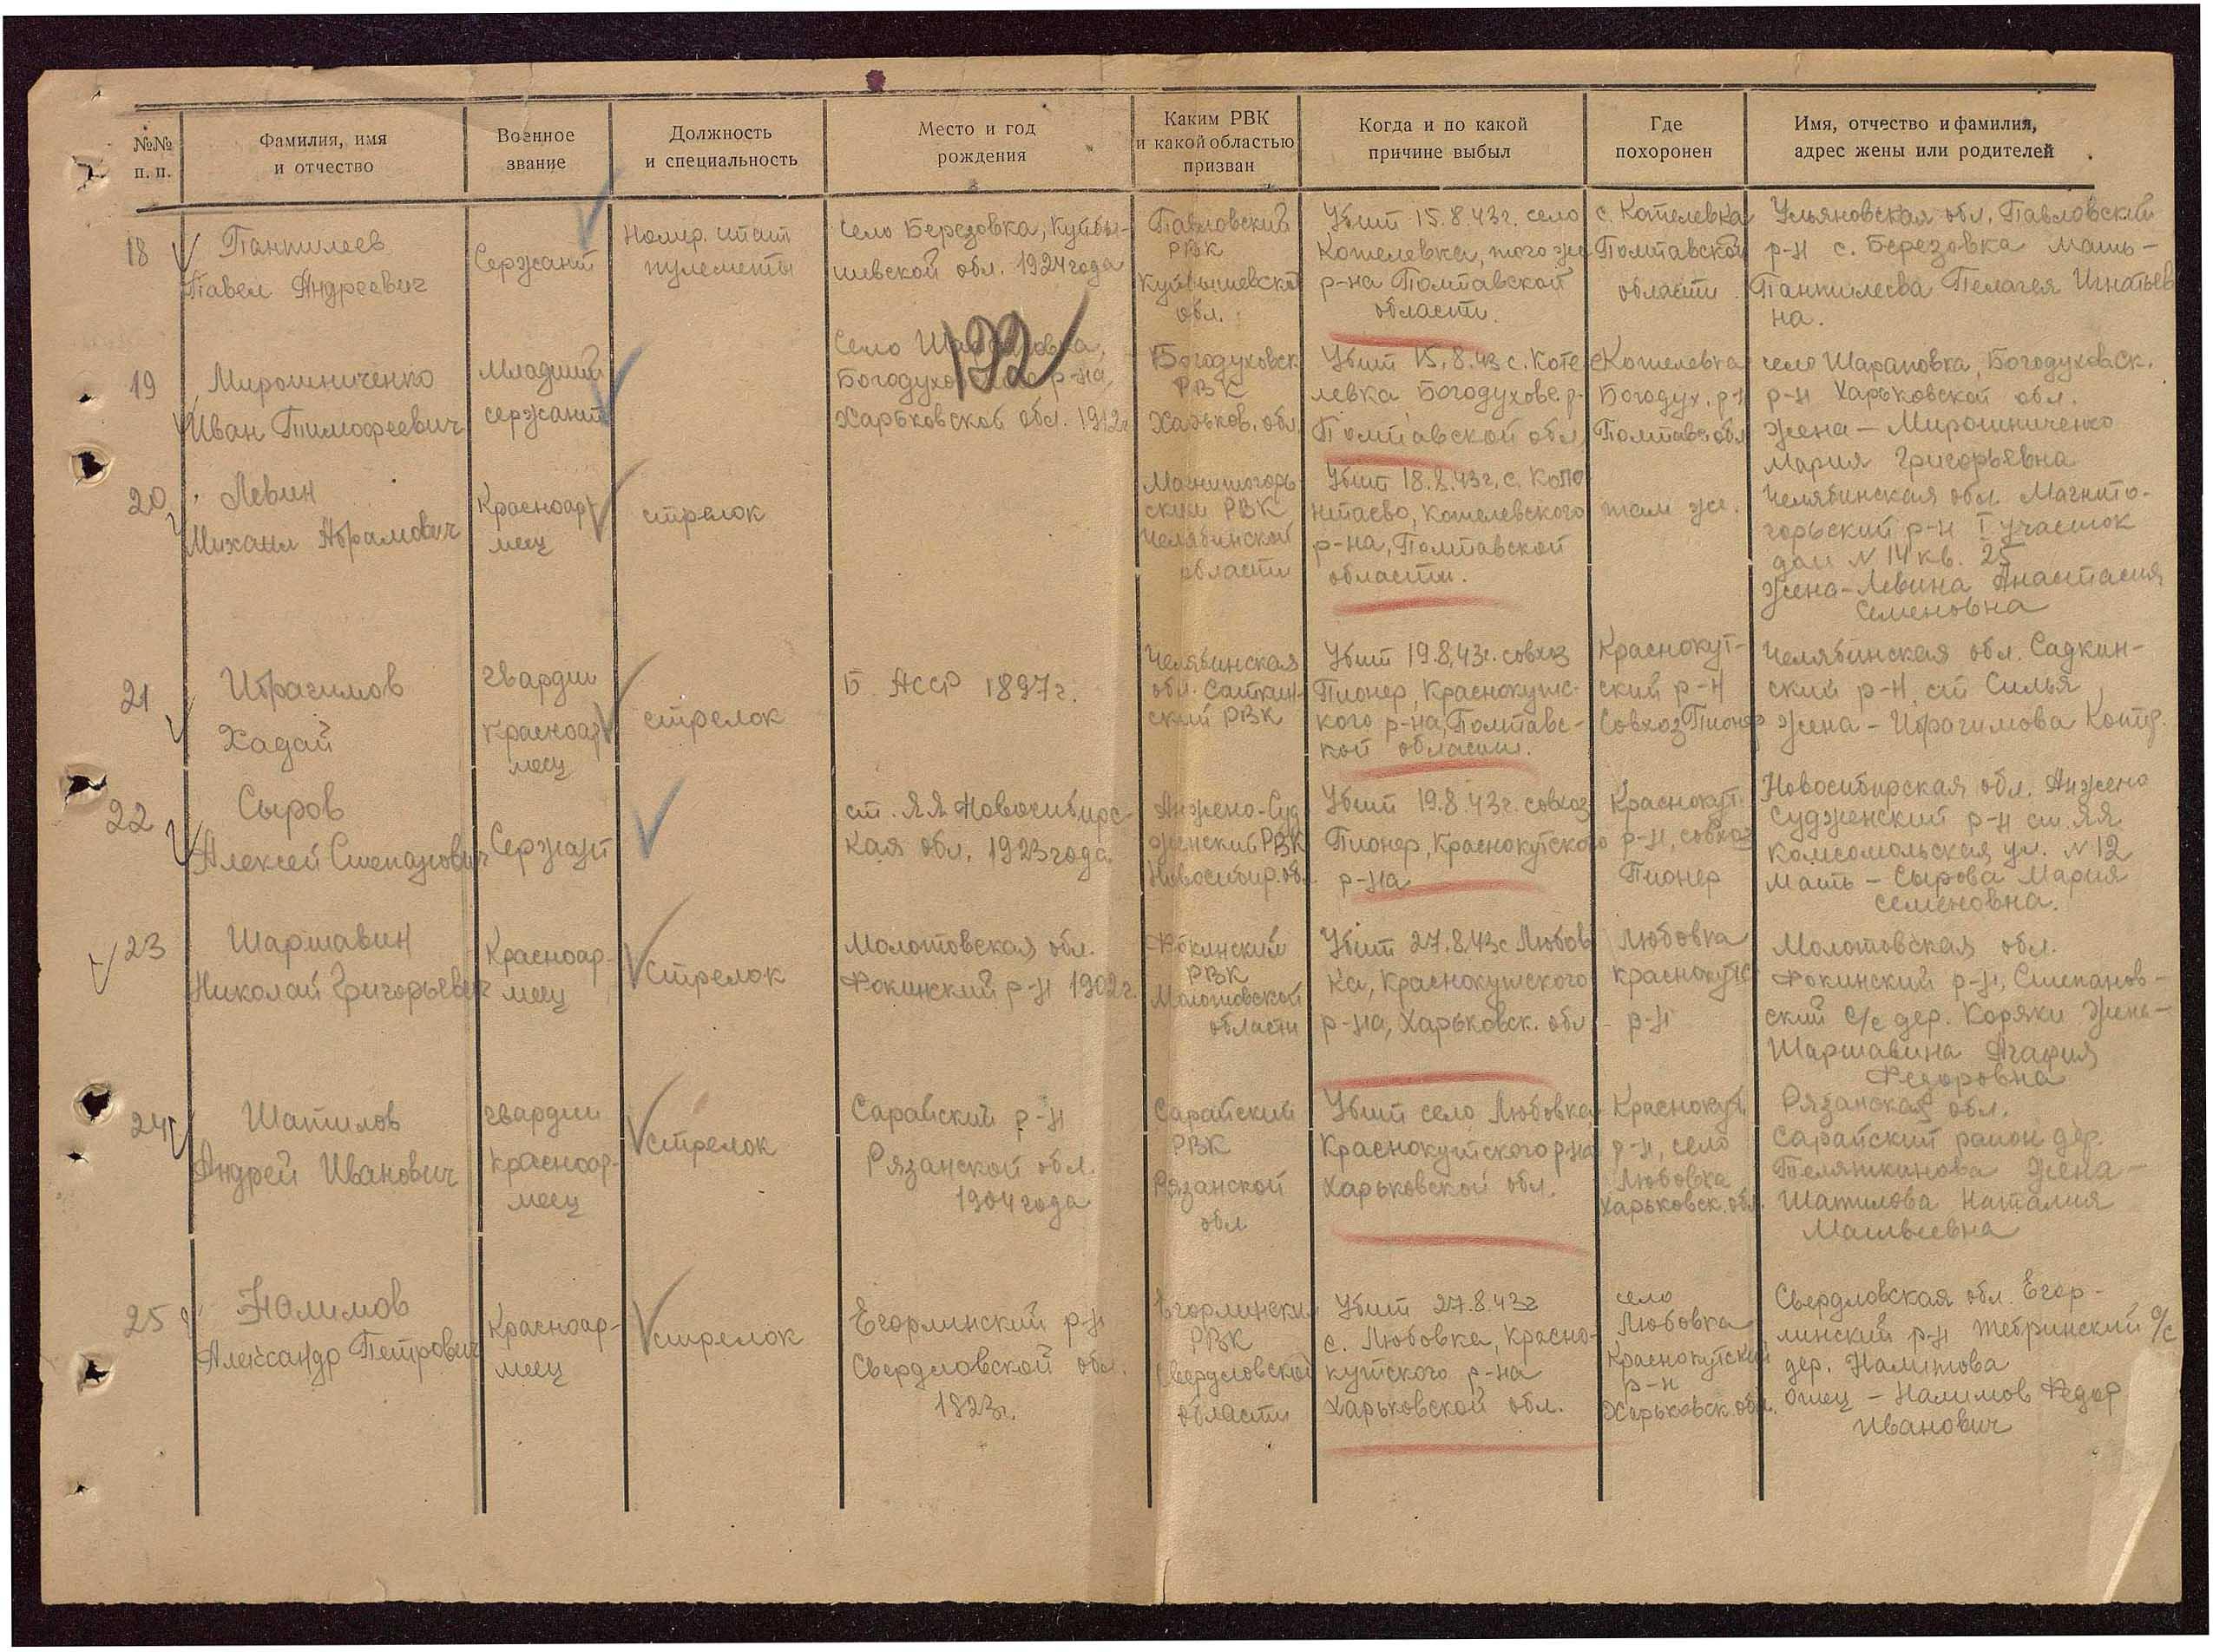 №№ п. п.
Фамилия, имя
и отчество
Военное
звание
Должность
и специальность
Место и год
рождения
Каким РВК
и какой областью
призван
Когда и по какой
причине выбыл
Где
похоронен
Имя, отчество и фамилия,
адрес жены или родителей
18
Пантилеев
Павел Андреевич
Сержант
Номер. стат
пулеметы
село Березовка, Куйбы-
шевской обл. 1924 года
Павловский
РВК
Куйбышевской
обл.
Убит 15.8.43г. село
Котелевка, того же
р-на Полтавской
области.
с. Котелевка
Полтавской
области
Ульяновская обл. Павловский
р-н с. Березовка мать-
Пантилеева Пелагея Игнатьев
на.
192
19
Мирошниченко
Иван Тимофеевич
Младший
сержант
Село
Богодуховского р-на,
Харьковской обл. 1912г
Богодуховск.
РВК
Харьков. обл.
Убит 15.8.43 с. Коте
левка Богодухове. р-
Полтавской обл.
с Котелевка
Богодух. р-н
Полтавс. обл
село Шараповка, Богодуховск.
р-н Харьковской обл.
жена - Мирошниченко
Мария Григорьевна
20
Левин
Михаил Абрамович
Красноар-
меец
стрелок
Магнитогорь
ский РВК
Челябинской
области
Убит 18.8.43г, с. Копо
нтаево, Котелевского
р-на, Полтавской
области.
там же.
Челябинская обл. Магнито-
горьский р-н I участок
дом N 14 кв. 25
Жена-Левина Анастасия
Семеновна
21
Ибрагимов
Хадай
гвардии
красноар
меец
стрелок
Б. АССР 1897г.
Челябинская
обл. Саткин-
ский РВК
Убит 19.8.43г. совхоз
Пионер, Краснокутс-
кого р-на, Полтавс-
кой области.
Краснокут-
ский р-н
Совхоз Пионер
Челябинская обл. Садкин-
ский р-н, ст Силья
Жена - Ибрагимова
22
Сыров
Алексей Степанович
Сержант
ст. Яя Новосибирс-
кая обл. 1923 года
Анжено-Суд
женский РВК
Новосибир. обл.
Убит 19.8.43г. совхоз
Пионер, Краснокутского
р-на
Краснокут.
р-н, совхоз
Пионер
Новосибирская обл. Анжено
Судженский р-н ст Яя
Комсомольская ул. N 12
Мать - Сырова Мария
Семеновна.
23
Шаршавин
Николай Григорьевич
Красноар-
меец
Стрелок
Молотовская обл.
Фокинский р-н 1902г.
Фокинский
РВК
Молотовской
области
Убит 27.8.43 с Любов
ка, Краснокутского
р-на, Харьковск. обл
Любовка
краснокутс
р-н
Молотовская обл.
Фокинский р-н, Степанов-
ский с/с дер. Коряки Жена-
Шаршавина Агафия
Федоровна
24
Шатилов
Андрей Иванович
гвардии
красноар-
меец
стрелок
Сарайский р-н
Рязанской обл.
1904 года
Сарайский
РВК
Рязанской
обл
Убит село Любовка,
Краснокутского р-на
Харьковской обл.
Краснокут
р-н, село
Любовка
Харьковск. обл.
Рязанская обл.
Сарайский район дер.
Телятникова Жена-
Шатилова Наталия
Матвеевна
25
Налимов
Александр Петрович
Красноар-
меец
стрелок
Егорлинский р-н
Свердловской обл.
1923г.
Егорлинский
РВК
Свердловской
области
Убит 27.8.43г
с. Любовка, Красно-
кутского р-на
Харьковской обл.
село
Любовка
Краснокутский
р-н
Харьковск. обл.
Свердловская обл. Егор-
линский р-н Жебринский с/с
дер. Налимова
Отец - Налимов Федор
Иванович